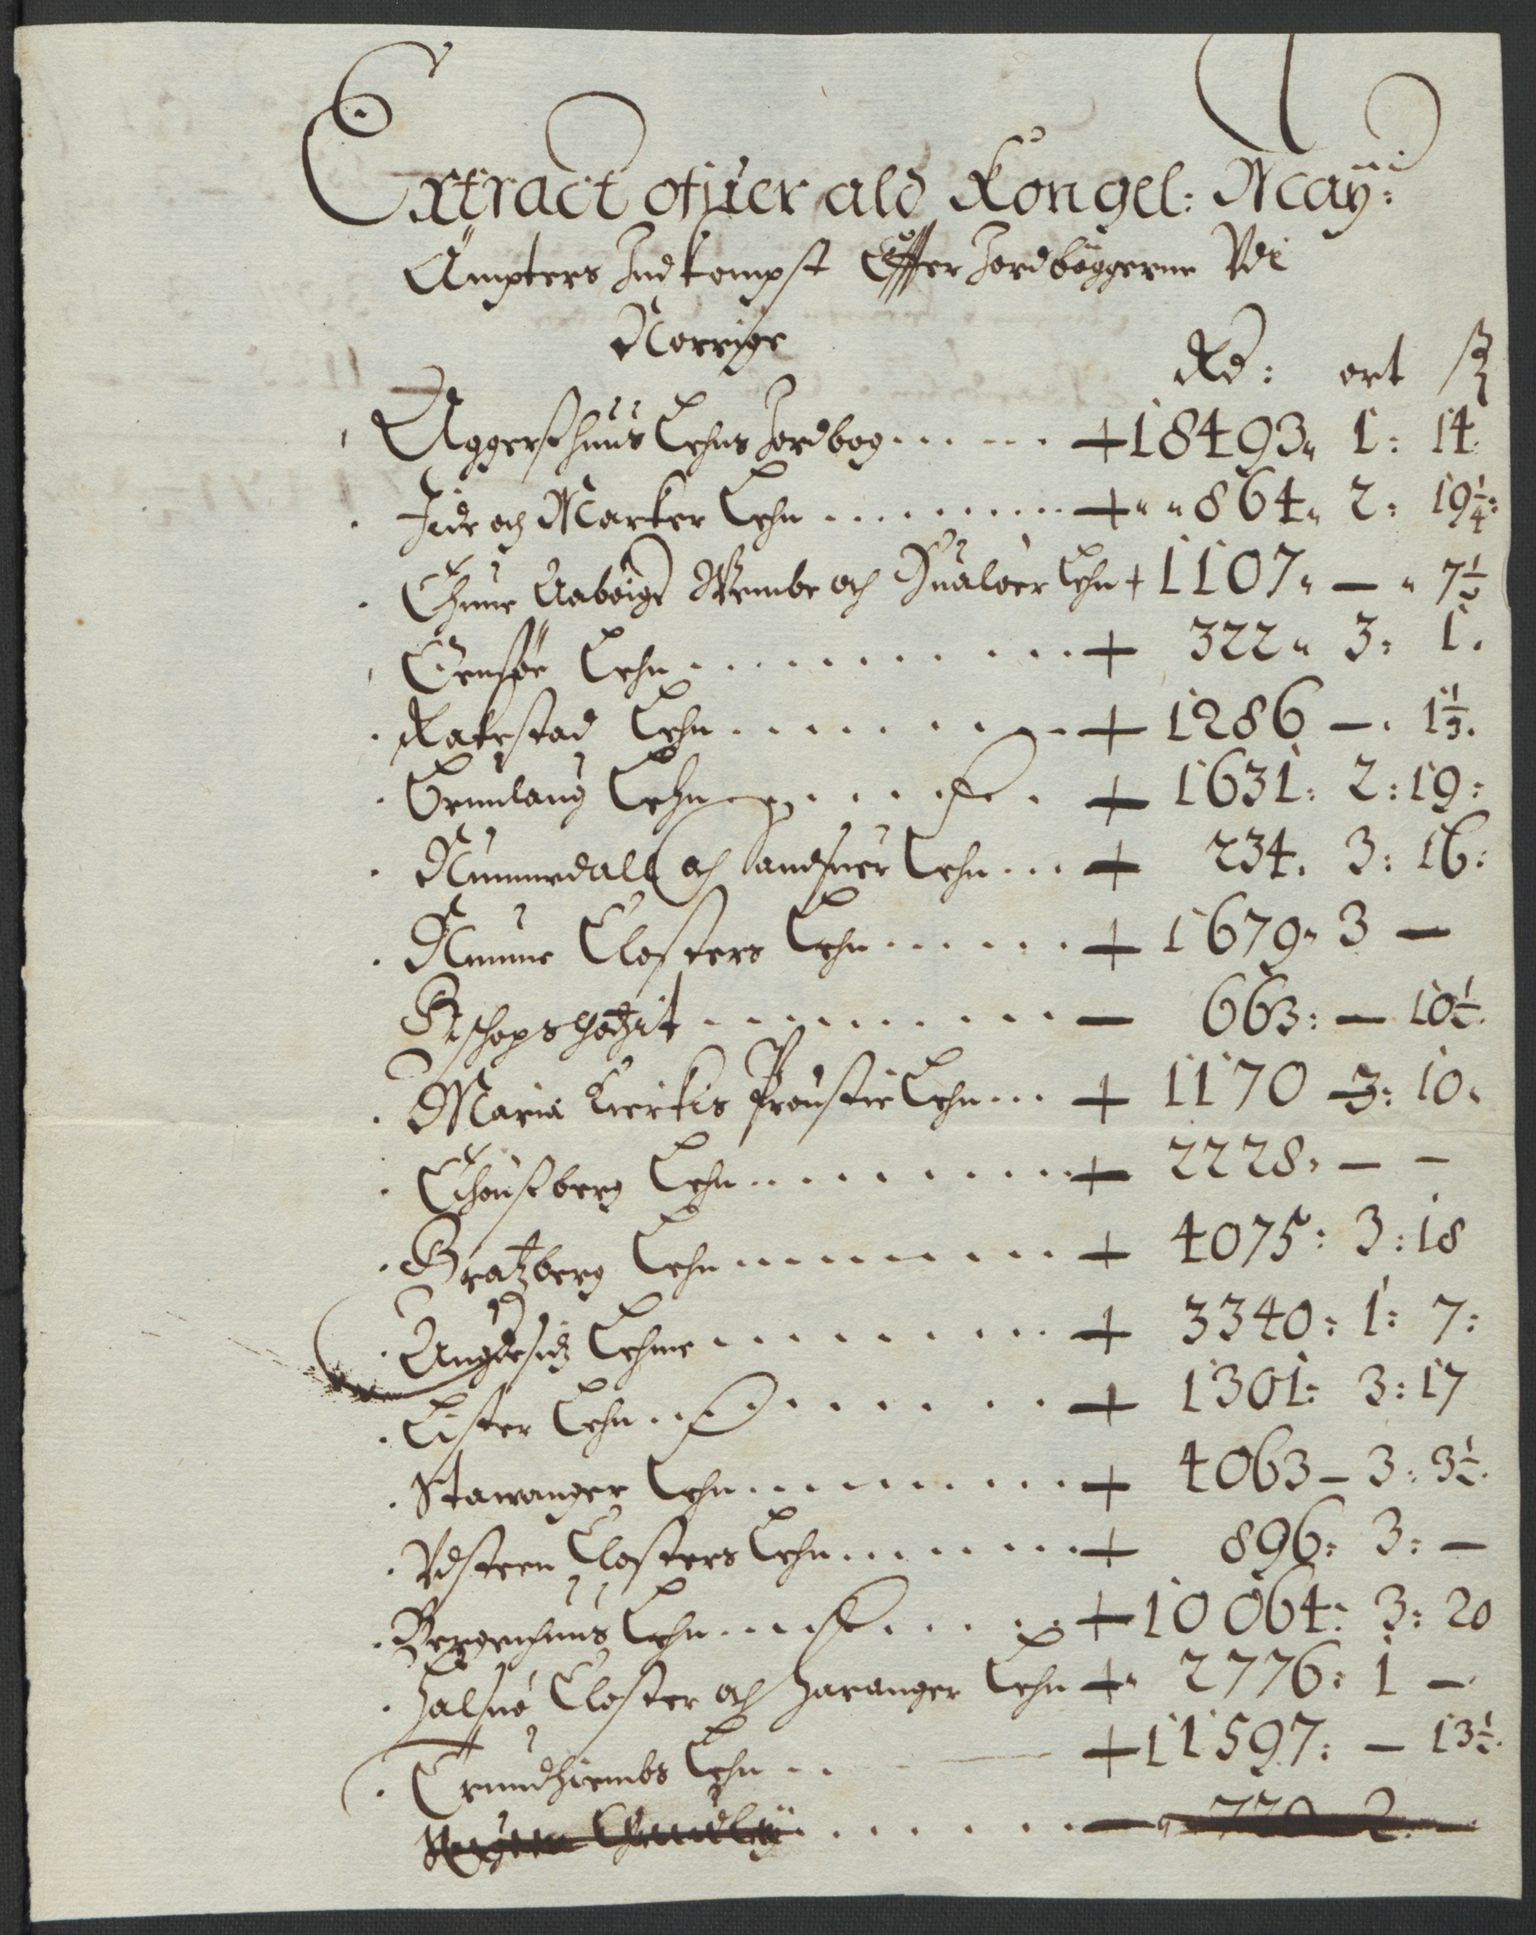 Extract ofuer ald Kongel: May:
Ampters Indkompst Effter Jordbøggerne Vdi
Norrige
Rd: ort ß
Aggerßhuus Lehns Jordbog ...... + 18493„ 1: 14
Iide och Marker Lehn ......... + „ „ 864„ 2: 19 1/4:
Thune Aabøigd Wembe och Hualøer Lehn + 1107„ — „ 7 1/2
Tensøe Lehn ............ + 322„ 3: 1.
Rakestad Lehn ......... + 1286 —. 1 1/3.
Grunlaug Lehn ........ + 1631: 2: 19:
Nummedall och Sandsuer Lehn ... + 234. 3: 16:
Numme Closters Lehn ...... + 1679„ 3 —
Bischops Lehn ......... — 663: — 10 1/2.
Maria Kierkis Proustie Lehn ... + 1170 3: 10.
Thønsberg Lehn ......... + 2228. — —
Bratzberg Lehn ......... + 4075: 3: 18
Agdesidz Lehne ......... + 3340: 1: 7:
Lister Lehn ......... + 1301: 3: 17
Stawanger Lehn ......... + 4063 — 3: 3 1/2.
Vdsteen Closters Lehn ....... + 896: 3: —
Bergenhuus Lehn ........ + 10064: 3: 20
Halsnø Closter och Haranger Lehn + „ 2776: 1 —
Trundhiembs Lehn .. + 11597: — 13 1/2.